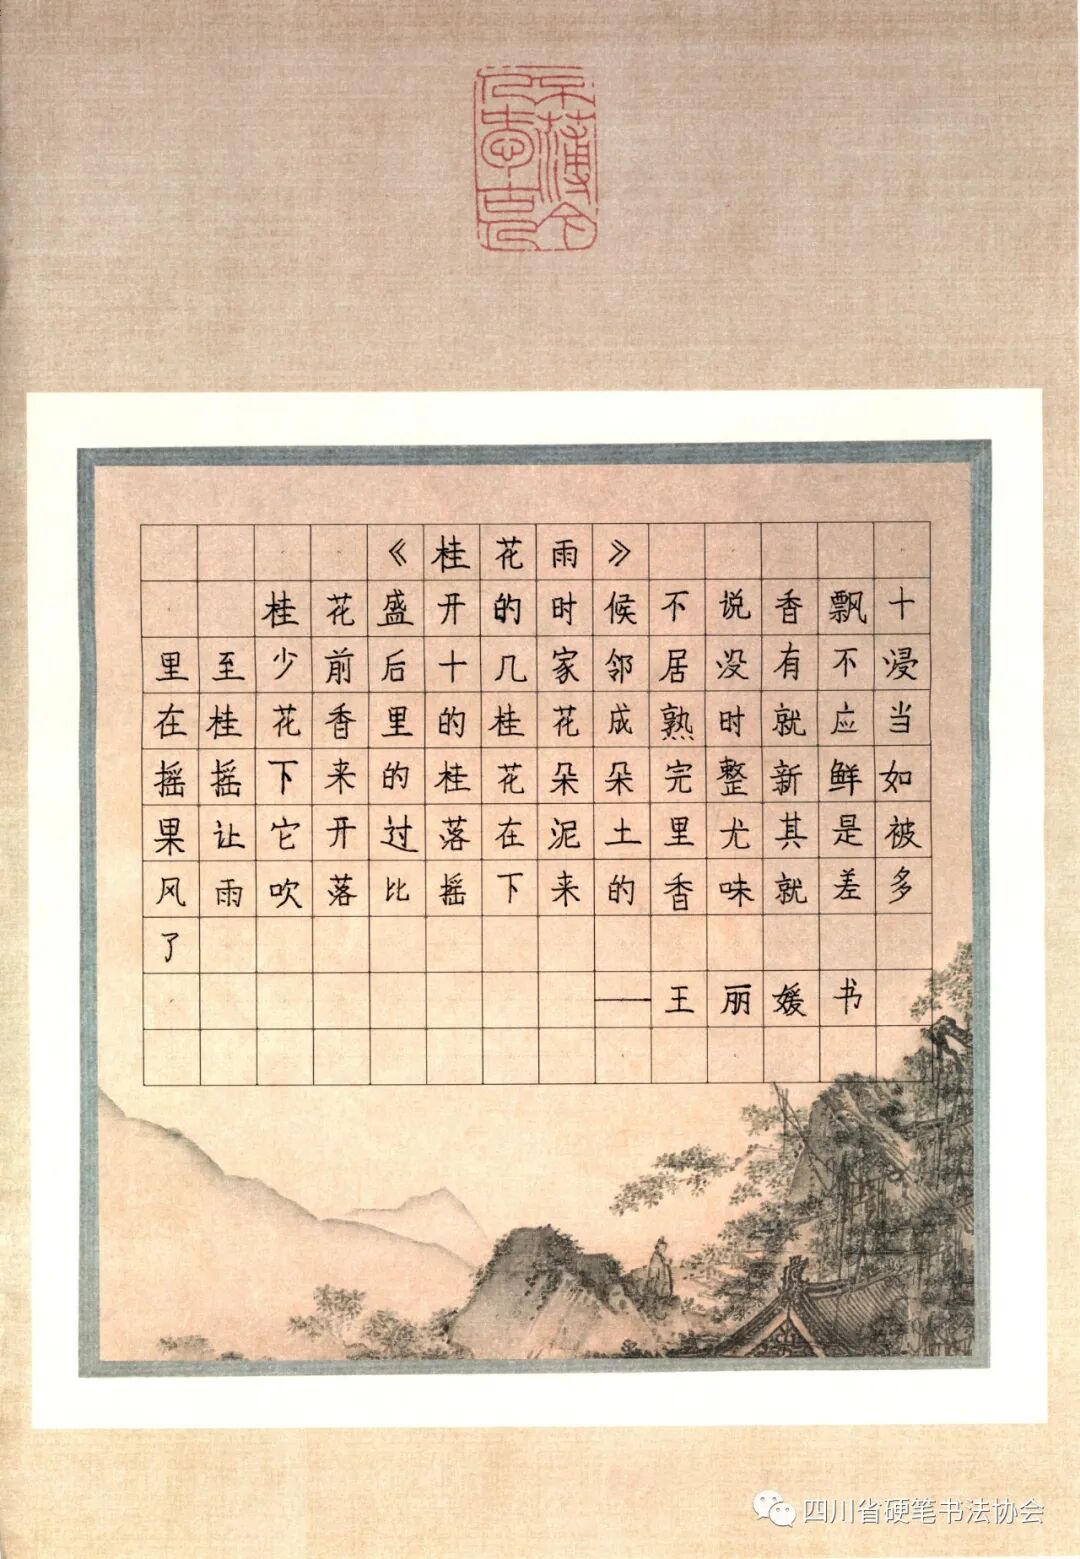 不薄今人爱古人
《桂花雨》
桂花盛开的时候不说香飘十
里至少前后十几家邻居没有不浸
在桂花香里的桂花成熟时就应当
摇摇下来的桂花朵朵完整新鲜如
果让它开过落在泥土里尤其是被
风雨吹落比摇下来的香味就差多
了
——王丽媛书
四川省硬笔书法协会